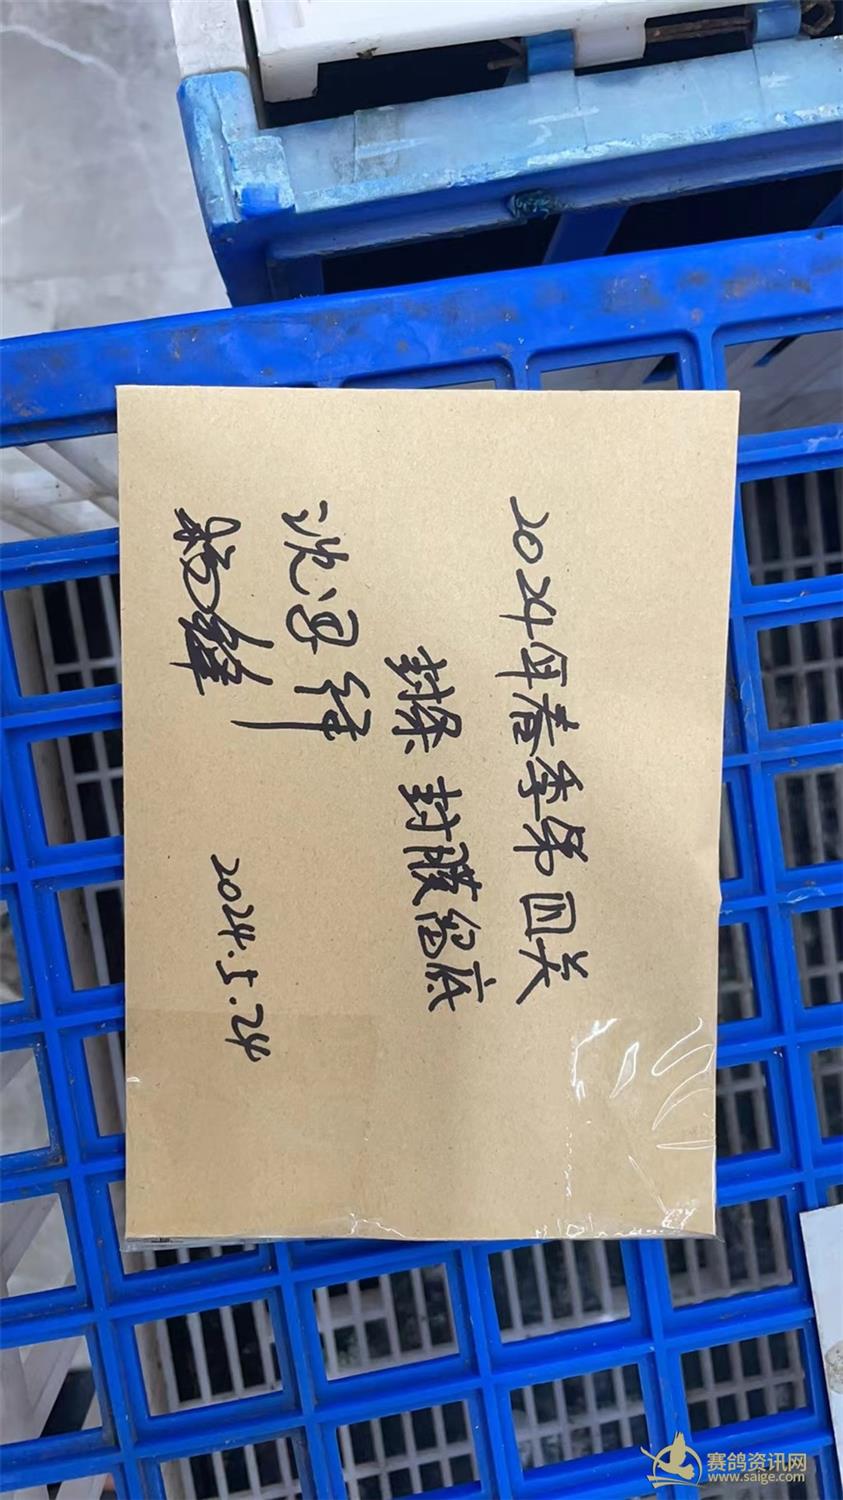 2024年春季第四关
封条 封膜留底
沈
杨
2024.5.24
赛鸽资讯网
www.saige.com